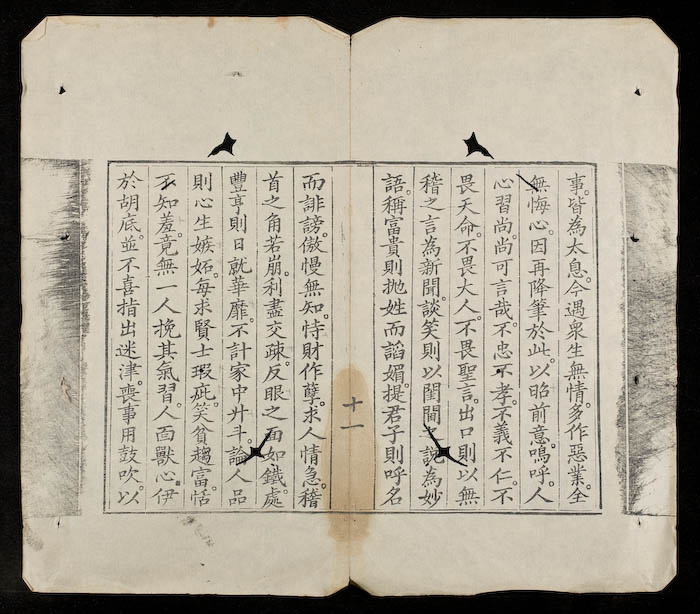 事。皆為太息。今遇衆生無情。多作惡業。全
無悔心。因再降筆於此。以昭前意。嗚呼。人
心習尚。尚可言哉。不忠不孝。不義不仁。不
畏天命。不畏大人。不畏聖言。出口則以無
稽之言為新聞。談笑則以閨閫之說為妙
語。稱富貴則拋姓而謟媚。提君子則呼名
十一
而誹謗。傲慢無知。恃財作孽。求人情急。稽
首之角若崩。利盡交疎。反眼之面如鐵。處
豐亨則日就華靡。不計家中升斗。論人品
則心生嫉妬。每求賢士瑕疵。笑貧趨富。恬
不知羞。竟無一人挽其氣習。人面獸心。伊
於胡底。並不喜指出迷津。喪事用鼓吹。以